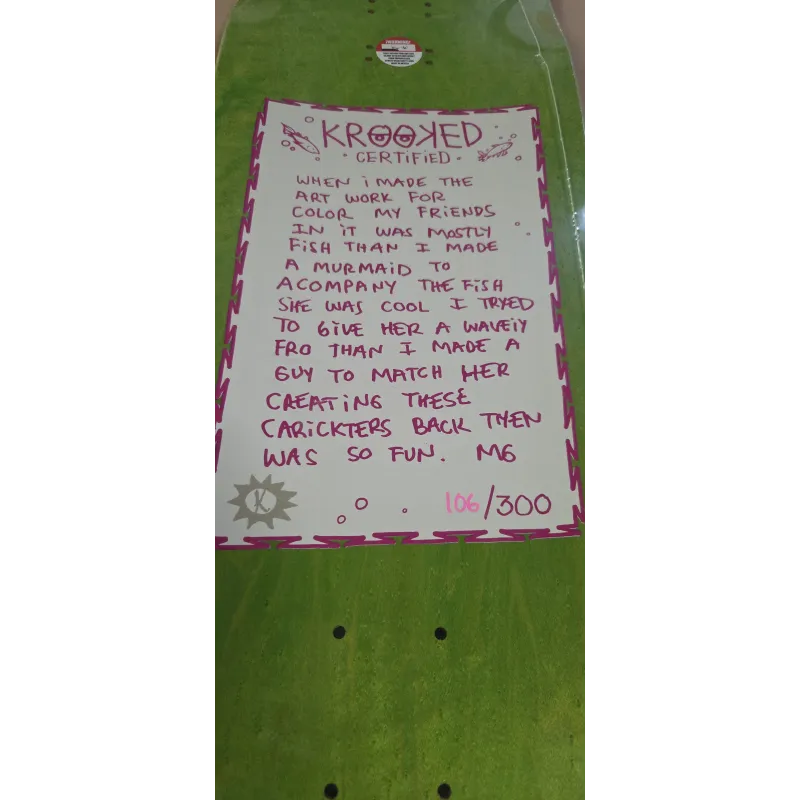 WARNING!
KROOKED
· CERTiFiED ·
WHEN i MADE THE
ART WORK FOR
COLOR MY FRiENDS
IN iT WAS MOSTLY
FiSH THAN I MADE
A MURMAiD TO
ACOMPANY THE FiSH
SHE WAS COOL I TRYED
TO GiVE HER A WAVEiY
FRO THAN I MADE A
GUY TO MATCH HER
CREATiNG THESE
CARiCKTERS BACK THEN
WAS SO FUN. MG
K.
106/300